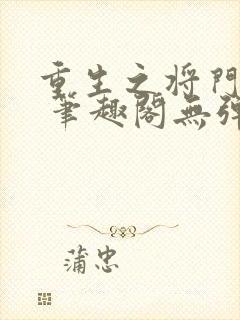 重生之将门
筆趣阁無弹
蒲忠